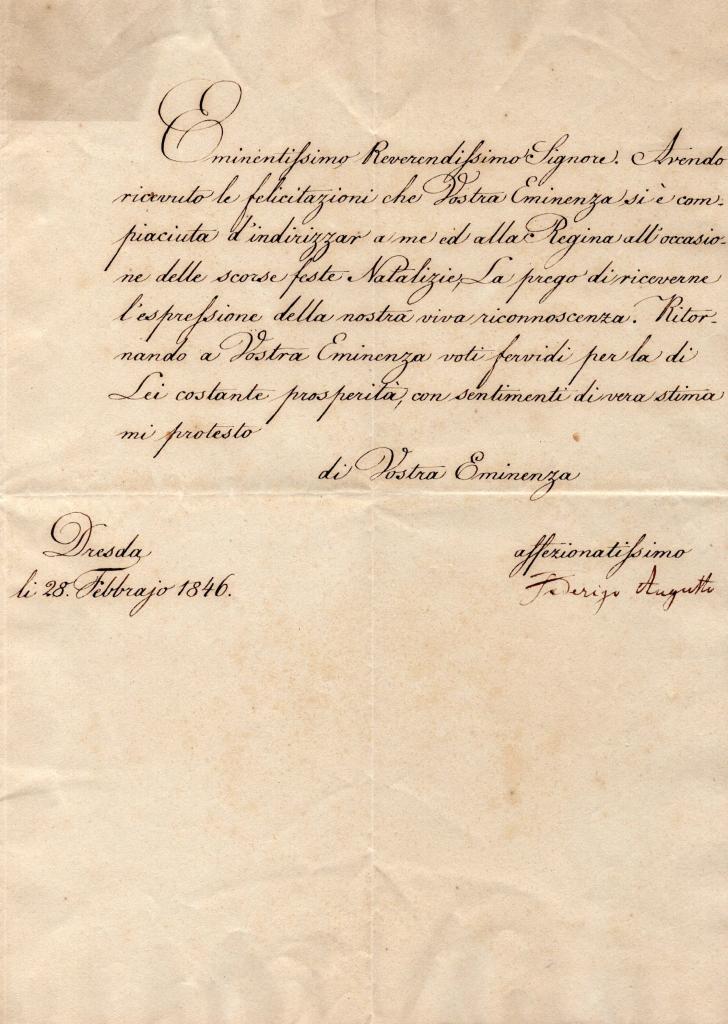 Eminentissimo Reverendissimo Signore. Avendo
ricevuto le felicitazioni che Vostra Eminenza si è com-
piaciuta d'indirizzar a me ed alla Regina all'occasio-
ne delle scorse feste Natalizie, La prego di riceverne
l'espressione della nostra viva riconnoscenza. Ritor-
nando a Vostra Eminenza voti fervidi per la di
Lei costante prosperità, con sentimenti di vera stima
mi protesto
di Vostra Eminenza
Dresda
li 28. Febbrajo 1846.
affezionatissimo
Federigo Augusto